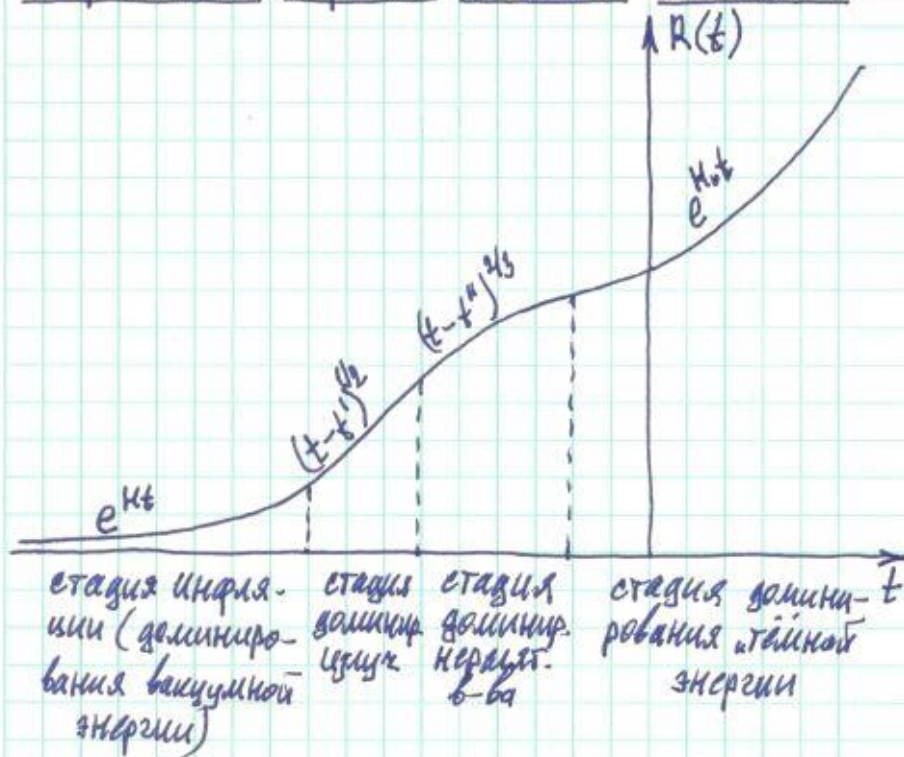 R(t)
e^{H₀t}
(t-t'')^{2/3}
(t-t')^{1/2}
e^{Ht}
t
стадия инфля-
ции (доминиро-
вания вакуумной
энергии)
стадия
доминир.
излуч
стадия
доминир.
нерелят.
в-ва
стадия домини-
рования „тёмной
энергии